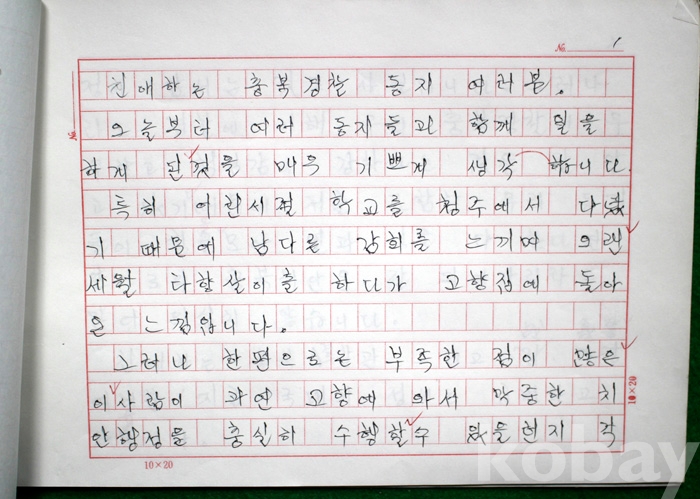 № 1
친애하는 충북경찰 동지 여러분.
오늘부터 여러 동지들과 함께 일을
하게 된것을 매우 기쁘게 생각 하니다
특히 어린시절 학교를 청주에서 다녔
기 때문에 남다른 감회를 느끼며 오랜
세월 타향살이를 하다가 고향집에 돌아
온 느낌입니다.
그러나 한편으로는 부족한 점이 많은
이사람이 과연 고향에 와서 막중한 치
안행정을 충실히 수행할수 있을런지 각
10×20
10×20
kobay